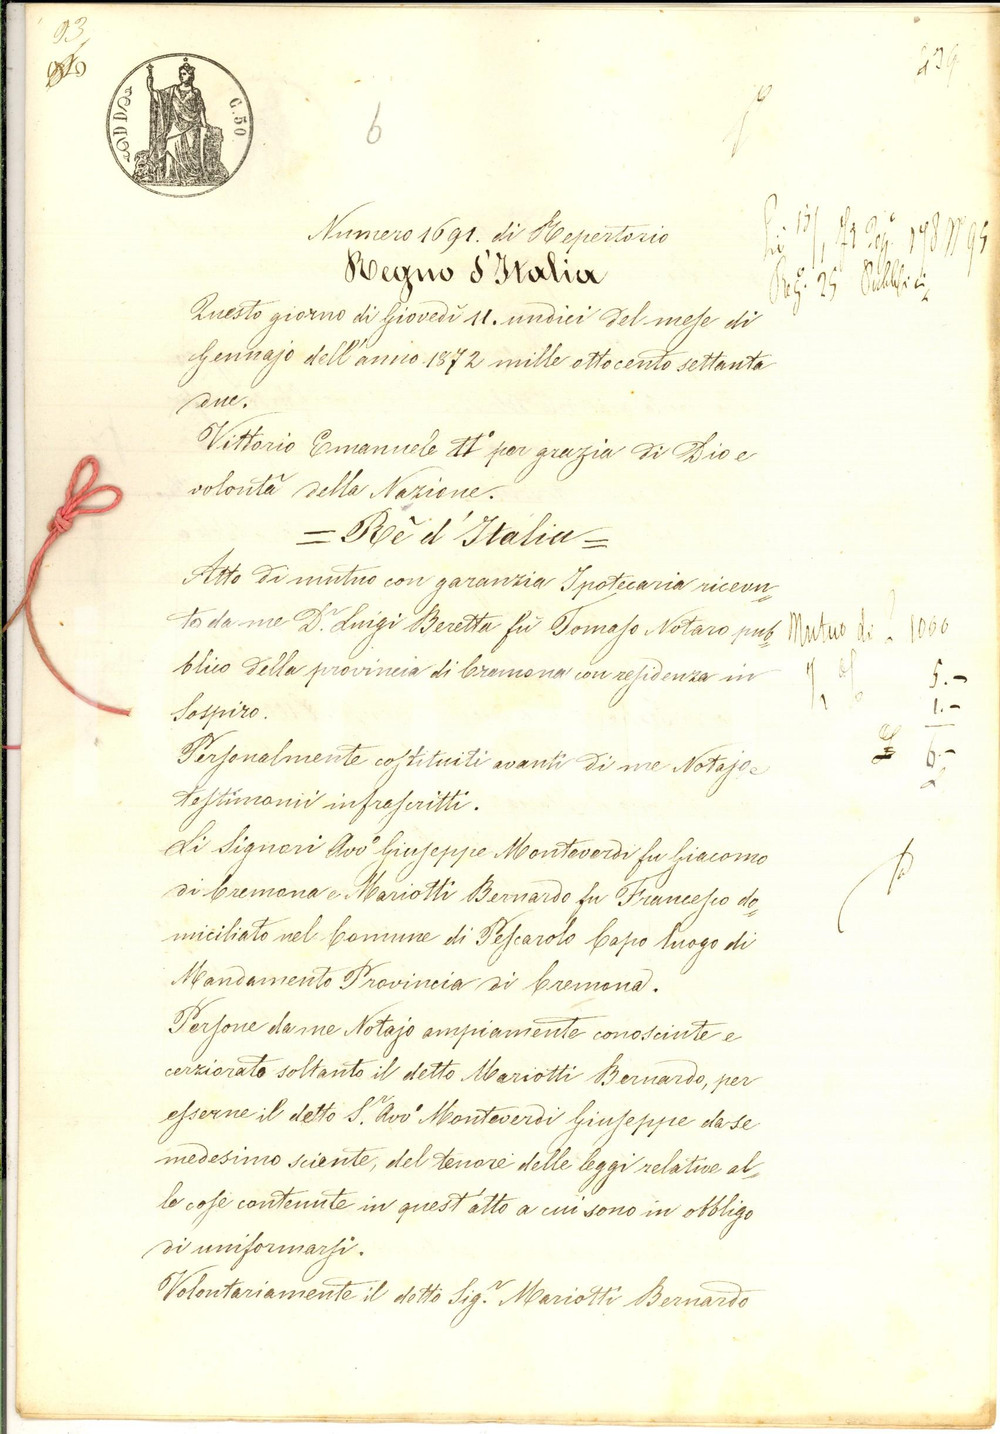 93
239
C. 50
6
Numero 1691. di Repertorio
Regno d'Italia
Reg. 25
Questo giorno di Giovedì 11. undici del mese di
Gennajo dell'anno 1872 mille ottocento settanta
due.
Vittorio Emanuele II° per grazia di Dio e
volontà della Nazione.
= Rè d'Italia =
Atto di mutuo con garanzia Ipotecaria ricevu=
to da me Dr. Luigi Beretta fù Tomaso Notaro pub=
blico della provincia di Cremona con residenza in
Sospiro.
Mutuo di £ 1000
5.-
1.-
6.-
Personalmente costituiti avanti di me Notajo e
testimonii infrascritti.
Li Signori Avvo Giuseppe Monteverdi fu Giacomo
di Cremona e Mariotti Bernardo fu Francesco do=
miciliato nel Comune di Pescarolo Capo luogo di
Mandamento Provincia di Cremona.
Persone da me Notajo ampiamente conosciute e
cerziorato soltanto il detto Mariotti Bernardo, per
esserne il detto Sr. Avvo Monteverdi Giuseppe da se
medesimo sciente, del tenore delle leggi relative al=
le cose contenute in quest'atto a cui sono in obbligo
di uniformarsi.
Volontariamente il detto Sig.r Mariotti Bernardo